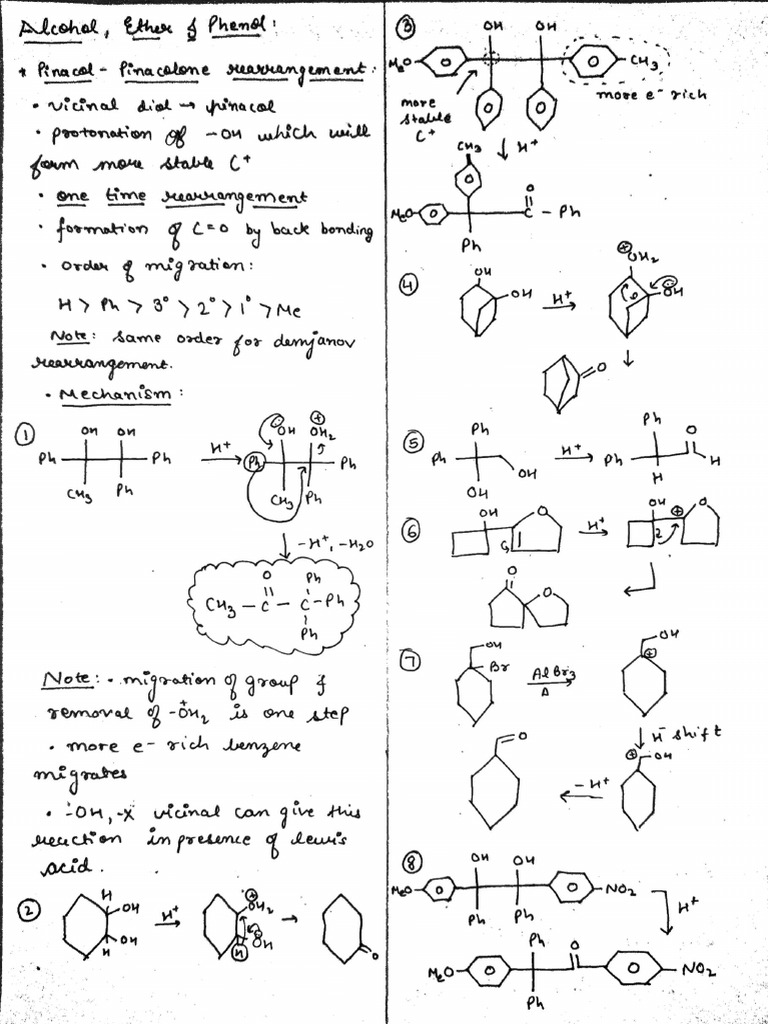 Alcohol, Ether & Phenol:
* Pinacol - Pinacolone rearrangement:
• vicinal diol → pinacol
• protonation of -OH which will
form more stable C⁺
• one time rearrangement
• formation of C=O by back bonding
• order of migration:
H > Ph > 3° > 2° > 1° > Me
Note: same order for demjanov
rearrangement.
• Mechanism:
①
OH OH
Ph Ph
CH₃ Ph
H⁺
⊕
OH OH₂
Ph Ph
CH₃ Ph
-H⁺, -H₂O
O Ph
CH₃ - C - C - Ph
Ph
Note: • migration of group &
removal of -O⁺H₂ is one step
• more e⁻ rich benzene
migrates
• -OH, -X vicinal can give this
reaction in presence of lewis
acid.
②
H
OH
OH
H
H⁺
⊕
OH₂
OH
H
O
③
OH OH
MeO CH₃
more
stable
C⁺
more e⁻ rich
H⁺
CH₃
O
MeO C - Ph
Ph
④
OH
OH
H⁺
⊕
OH₂
OH
O
⑤
Ph
Ph
OH
OH
H⁺
Ph
O
Ph H
H
⑥
OH O
H⁺
OH ⊕ O
O
O
⑦
OH
Br
AlBr₃
Δ
OH
⊕
H⁻ shift
⊕ OH
-H⁺
O
⑧
OH OH
MeO NO₂
Ph Ph
H⁺
Ph O
MeO NO₂
Ph